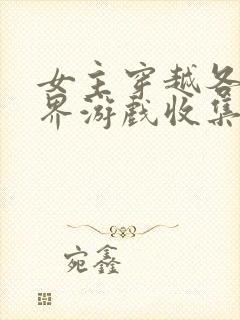 女主穿越各
界游戏收集
宛鑫